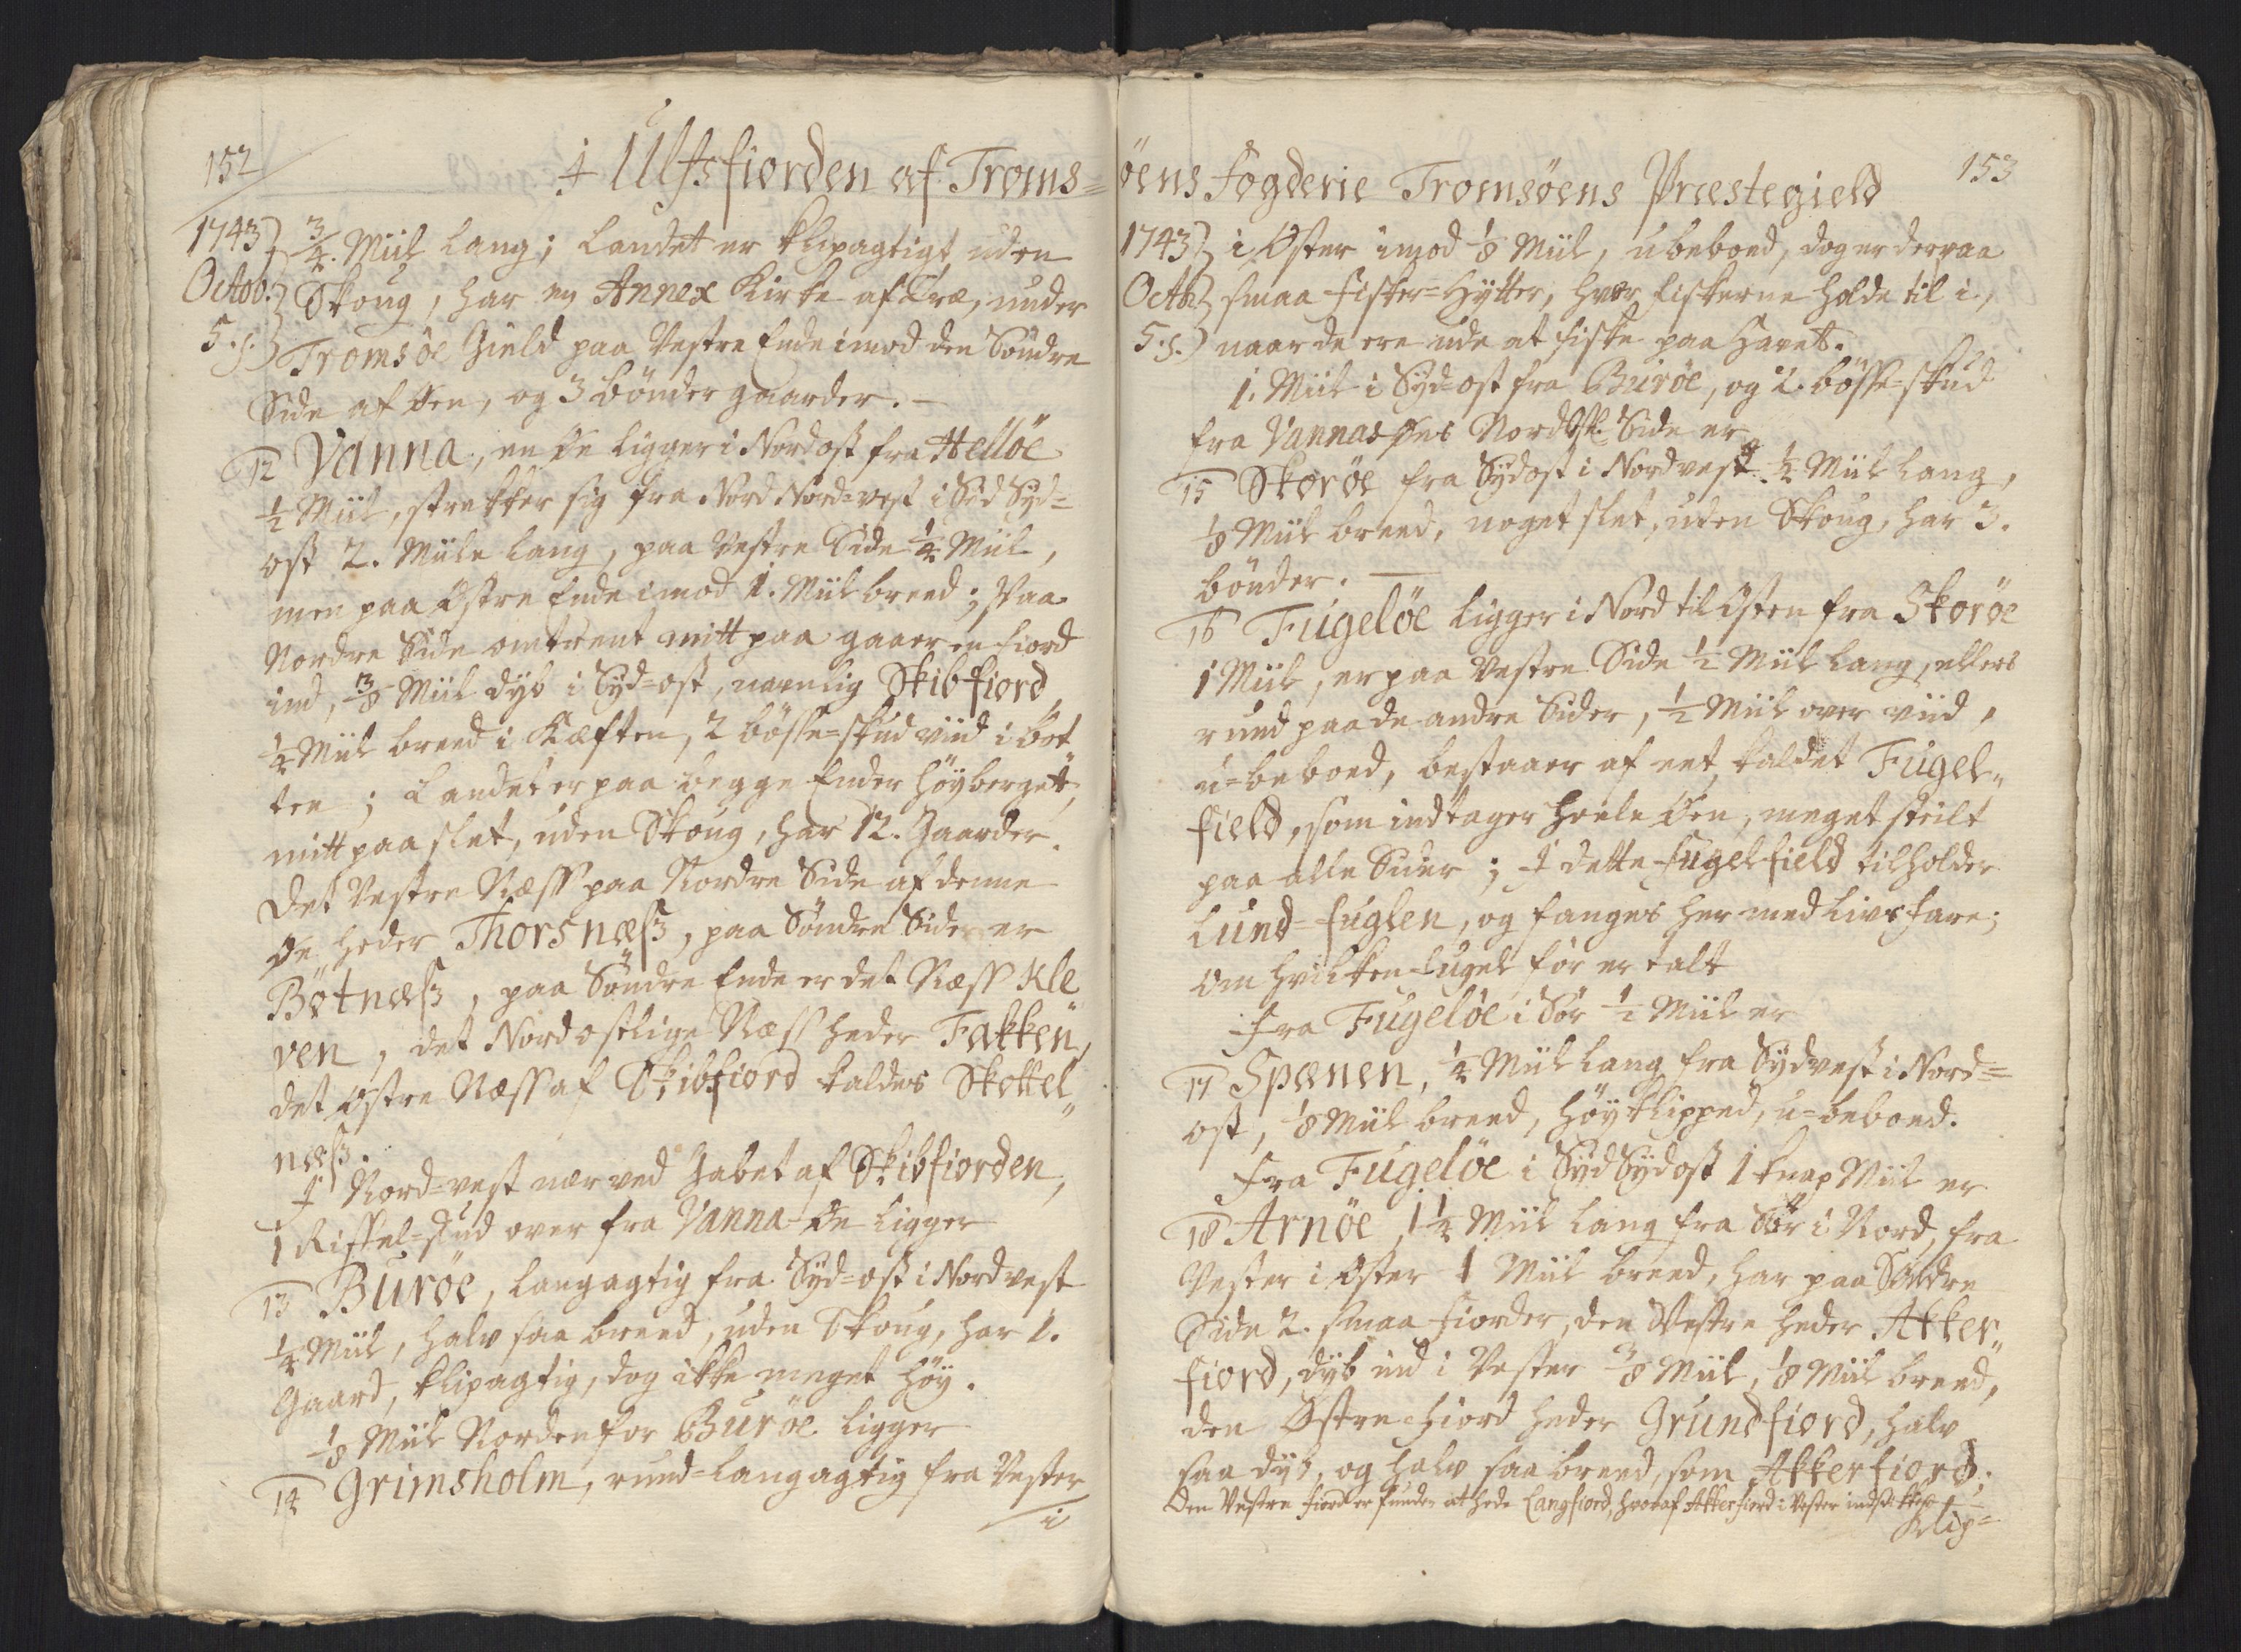 152
I Ulfsfiorden af Troms=
1743 3/4. Miil lang; Landet er klipagtigt uden
Octob. Skoug, har en Annex Kirke af Træ, under
5. s. Tromsöe Gield paa Vestre Ende imod den Söndre
Side af Öen, og 3 bönder gaarder. —
12 Vanna, en Öe ligger i Nordost fra Hellöe
1/2 Miil, strekker sig fra Nord Nord=vest i Sÿd Sÿd=
ost 2. Miile lang, paa Vestre Side 1/4 Miil,
men paa Östre Ende imod 1. Miil breed; Paa
Nordre Side omtrent mitt paa gaaer en Fiord
ind, 3/8 Miil dÿb i Sÿd=ost, nemlig Skibfiord
1/4 Miil breed i Kæften, 2 bösse=skud viid i bot
ten; Landet er paa begge Ender höyberget,
mitt paa slet, uden Skoug, har 12. Gaarder.
Det Vestre Næss paa Nordre Side af denne
Öe heder Thorsnæss, paa Söndre Side er
Bötnæss, paa Söndre Ende er det Næss Kle
ven, det Nordostlige Næss heder Fakken,
det Östre Næss af Skibfiord kaldes Skottel
næss.
I Nord=vest nær ved Gabet af Skibfiorden,
1 Riffel=skud over fra Vanna Öe ligger
13 Buröe, langagtig fra Sÿd=ost i Nordvest
1/4 Miil, halv saa breed, uden Skoug, har 1.
Gaard, klipagtig, dog ikke meget höÿ.
1/8 Miil Norden for Buröe ligger
14 Grimsholm, rund=langagtig fra Vester
i
153
öens Fogderie Tromsöens Præstegield
1743 i Öster imod 1/8 Miil, ubeboed, dog er derpaa
Octb. smaa Fisker=Hÿtter, hvor Fiskerne holde til i,
5. s. naar de ere ude at fiske paa Havet.
1. Miil i Sÿd=ost fra Buröe, og 2. bösse=skud
fra Vannas Öes Nordostl. Side er
15 Skoröe fra Sÿdost i Nordvest 1/4 Miil lang,
1/8 Miil breed, noget slet, uden Skoug, har 3.
bönder. —
16 Fugelöe ligger i Nord til Östen fra Skoröe
1 Miil, er paa Vestre Side 1/2 Miil lang, ellers
rund paa de andre Sider, 1/2 Miil over viid,
u=beboed, bestaaer af eet, kaldet Fugel=
field, som indtager heele Öen, meget steilt
paa alle Sider; I dette Fugelfield tilholder
Lund=Fuglen, og fanges her med Livs fare;
om hvilken Fugel för er talt
Fra Fugelöe i Sör 1/2 Miil er
17 Spænen, 1/4 Miil lang fra Sÿdvest i Nord=
ost, 1/8 Miil breed, höÿ klipped, u=beboed.
Fra Fugelöe i Sÿd Sÿdost 1 knap Miil er
18 Arnöe, 1 1/4 Miil lang fra Sör i Nord, fra
Vester i Öster 1 Miil breed, har paa Söndre
Side 2. smaa Fiorder, den Vestre heder Akker=
fiord, dÿb ind i Vester 3/8 Miil, 1/8 Miil breed,
den Östre Fiord heder Grundfiord, halv
saa dÿb, og halv saa breed, som Akkerfiord;
Den Vestre Fiord er funden at hede Langfiord, hvoraf Akkerfiord i Vester indstikker
Klip=